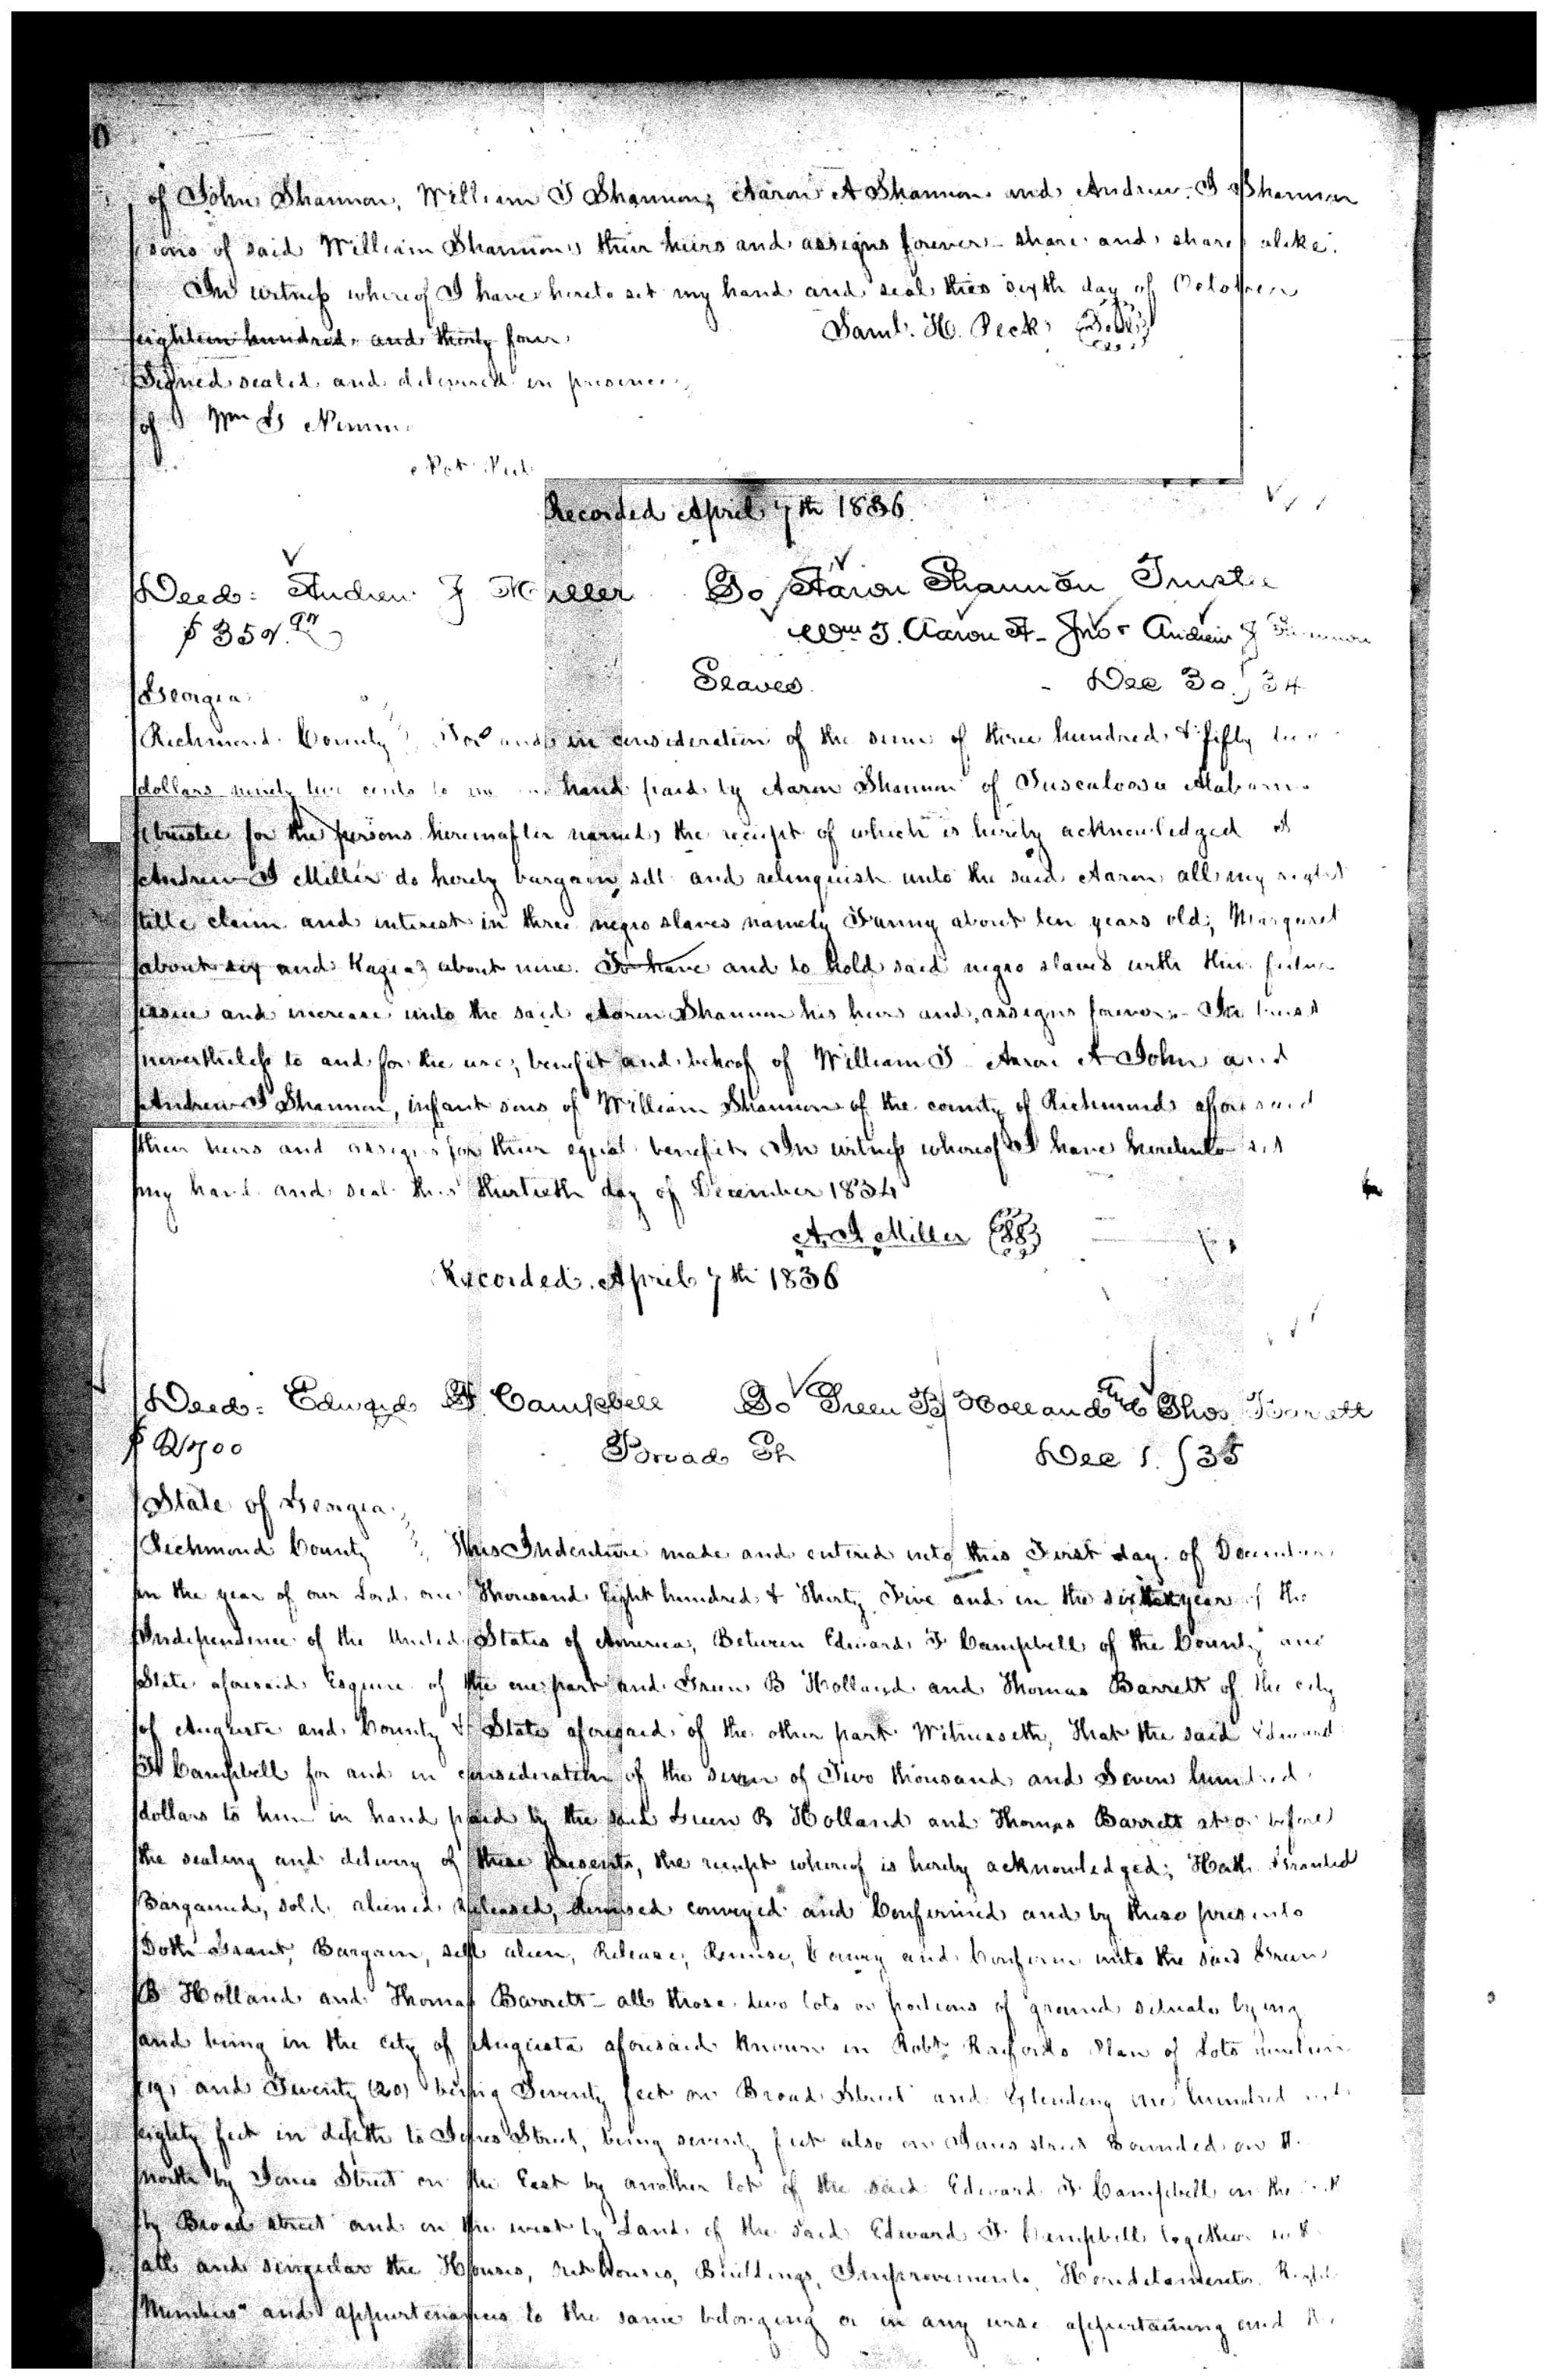 of John Shannon, William J Shannon, Aaron A Shannon and Andrew J Shannon
sons of said William Shannon, their heirs and assigns forever - share and share alike.
In witness whereof I have hereto set my hand and seal this sixth day of October
eighteen hundred and thirty four Saml. H. Peck
Signed sealed and delivered in presence
of Wm
Not Pub
Recorded April 7th 1836
Deed: Andrew J Miller To Aaron Shannon Trustee
Wm J. Aaron A - Jno & Andrew J Shannon
Georgia Slaves Dec 30 / 34
Richmond County For and in consideration of the sum of three hundred & fifty
dollars ninety two cents to me in hand paid by Aaron Shannon of Tuscaloosa Alabama
trustee for the persons hereinafter named, the receipt of which is hereby acknowledged I
Andrew J Miller do hereby bargain, sell and relinquish unto the said Aaron all my right
title claim and interest in three negro slaves namely Fanny about ten years old; Margaret
about six and about nine. To have and to hold said negro slaves with their future
issue and increase unto the said Aaron Shannon his heirs and assigns forever - In trust
nevertheless to and for the use, benefit and behoof of William J Aaron A John and
Andrew J Shannon, infant sons of William Shannon of the county of Richmond aforesaid
their heirs and assigns for their equal benefit. In witness whereof I have hereunto set
my hand and seal this thirtieth day of December 1834
A. J. Miller
Recorded April 7th 1836
Deed: Edward F. Campbell To Green B Holland & Thos Barrett
$ 2700 Broad St Dec 1. / 35
State of Georgia
Richmond County This Indenture made and entered into this First day of December
in the year of our Lord one Thousand Eight hundred & Thirty Five and in the year of the
Independence of the United States of America, Between Edward F Campbell of the County and
State aforesaid Esquire of the one part and Green B Holland and Thomas Barrett of the city
of Augusta and County & State aforesaid of the other part Witnesseth, That the said Edward
F Campbell for and in consideration of the sum of Two thousand and Seven hundred
dollars to him in hand paid by the said Green B Holland and Thomas Barrett at or before
the sealing and delivery of these presents, the receipt whereof is hereby acknowledged; Hath Granted
Bargained, sold, aliened released, remised conveyed and Confirmed and by these presents
Doth Grant, Bargain, sell alien, Release, Remise, Convey and Confirm unto the said Green
B Holland and Thomas Barrett - all those two lots or portions of ground situate lying
and being in the city of Augusta aforesaid known in Robt Raifords Plan of Lots
19, and Twenty (20) being Seventy feet on Broad Street and Extending one hundred and
eighty feet in depth to Jones Street, being seventy feet also on Jones street Bounded on the
north by Jones Street on the East by another lot of the said Edward F Campbell on the
by Broad street and on the west by Land of the said Edward F Campbell together with
all and singular the Houses, Outhouses, Buildings, Improvements, Hereditaments, Rights
Members and appurtenances to the same belonging or in any wise appertaining and